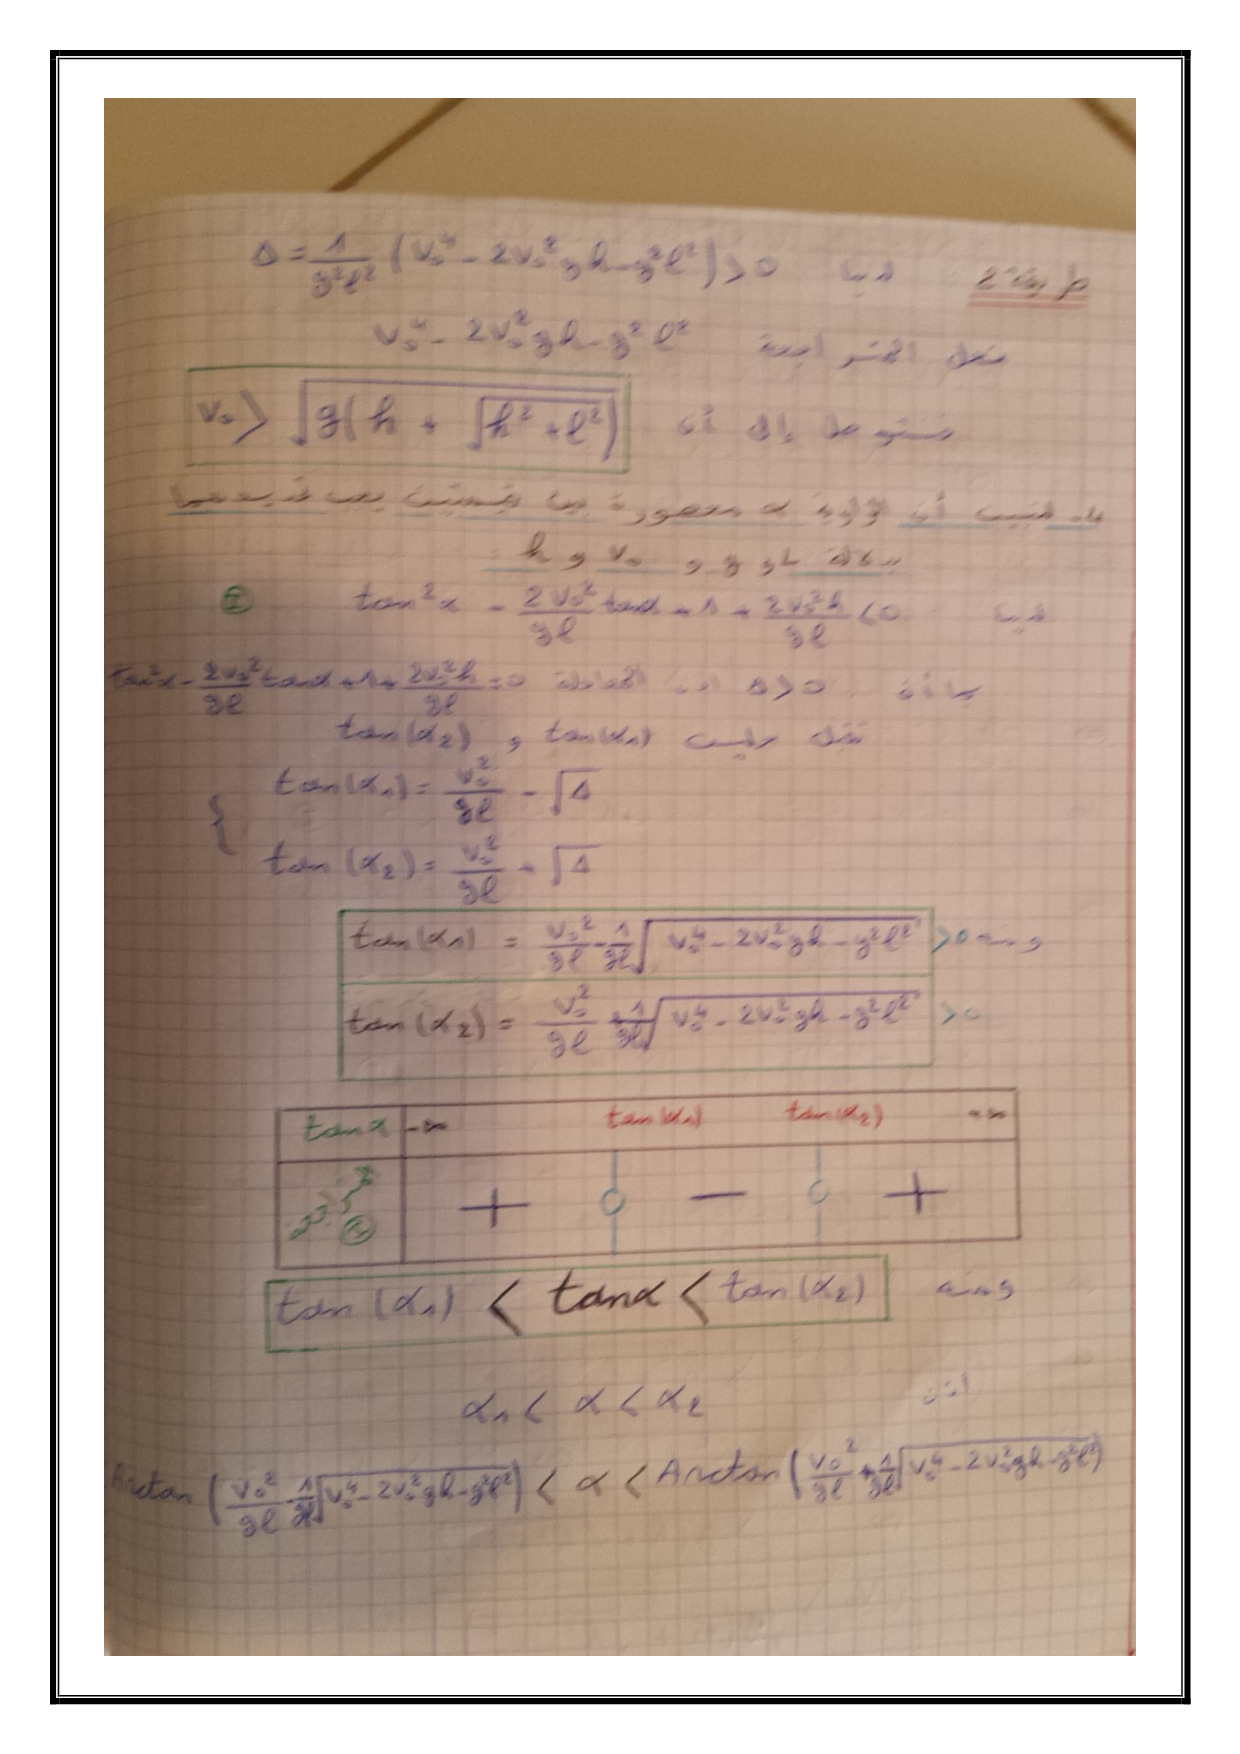 طريقة 2 لدينا Δ = 1/(g²l²) (V₀⁴ - 2V₀²gh - g²l²) > 0
V₀⁴ - 2V₀²gh - g²l²
نتوصل إلى أن V₀ > √(g(h + √(h²+l²)))
4- لنبين أن الزاوية α محصورة بين قيمتين يجب تحديدهما
بدلالة l و g و V₀ و h :
لدينا tan²α - (2V₀²/gl) tanα + 1 + (2V₀²h)/(gl) < 0 ①
بما أن Δ > 0 اذن المعادلة tan²α - (2V₀²/gl) tanα + 1 + (2V₀²h)/(gl) = 0
تقبل حلين tan(α₁) و tan(α₂)
{ tan(α₁) = V₀²/(gl) - √Δ
tan(α₂) = V₀²/(gl) + √Δ
ومنه tan(α₁) = V₀²/(gl) - (1/gl)√(V₀⁴ - 2V₀²gh - g²l²) > 0
tan(α₂) = V₀²/(gl) + (1/gl)√(V₀⁴ - 2V₀²gh - g²l²) > 0
tanα -∞ tan(α₁) tan(α₂) +∞
① + 0 - 0 +
ومنه tan(α₁) < tanα < tan(α₂)
اذن α₁ < α < α₂
Arctan(V₀²/(gl) - (1/gl)√(V₀⁴ - 2V₀²gh - g²l²)) < α < Arctan(V₀²/(gl) + (1/gl)√(V₀⁴ - 2V₀²gh - g²l²))